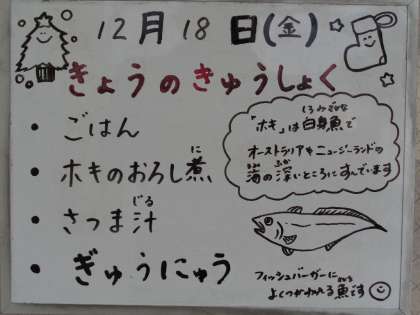 12月18日(金)
きょうのきゅうしょく
・ごはん
・ホキのおろし煮
に
・さつま汁
じる
・ぎゅうにゅう
しろみざかな
「ホキ」は白身魚で
オーストラリアやニュージーランドの
うみ ふか
海の深いところにすんでいます
フィッシュバーガーに
よくつかわれる魚です